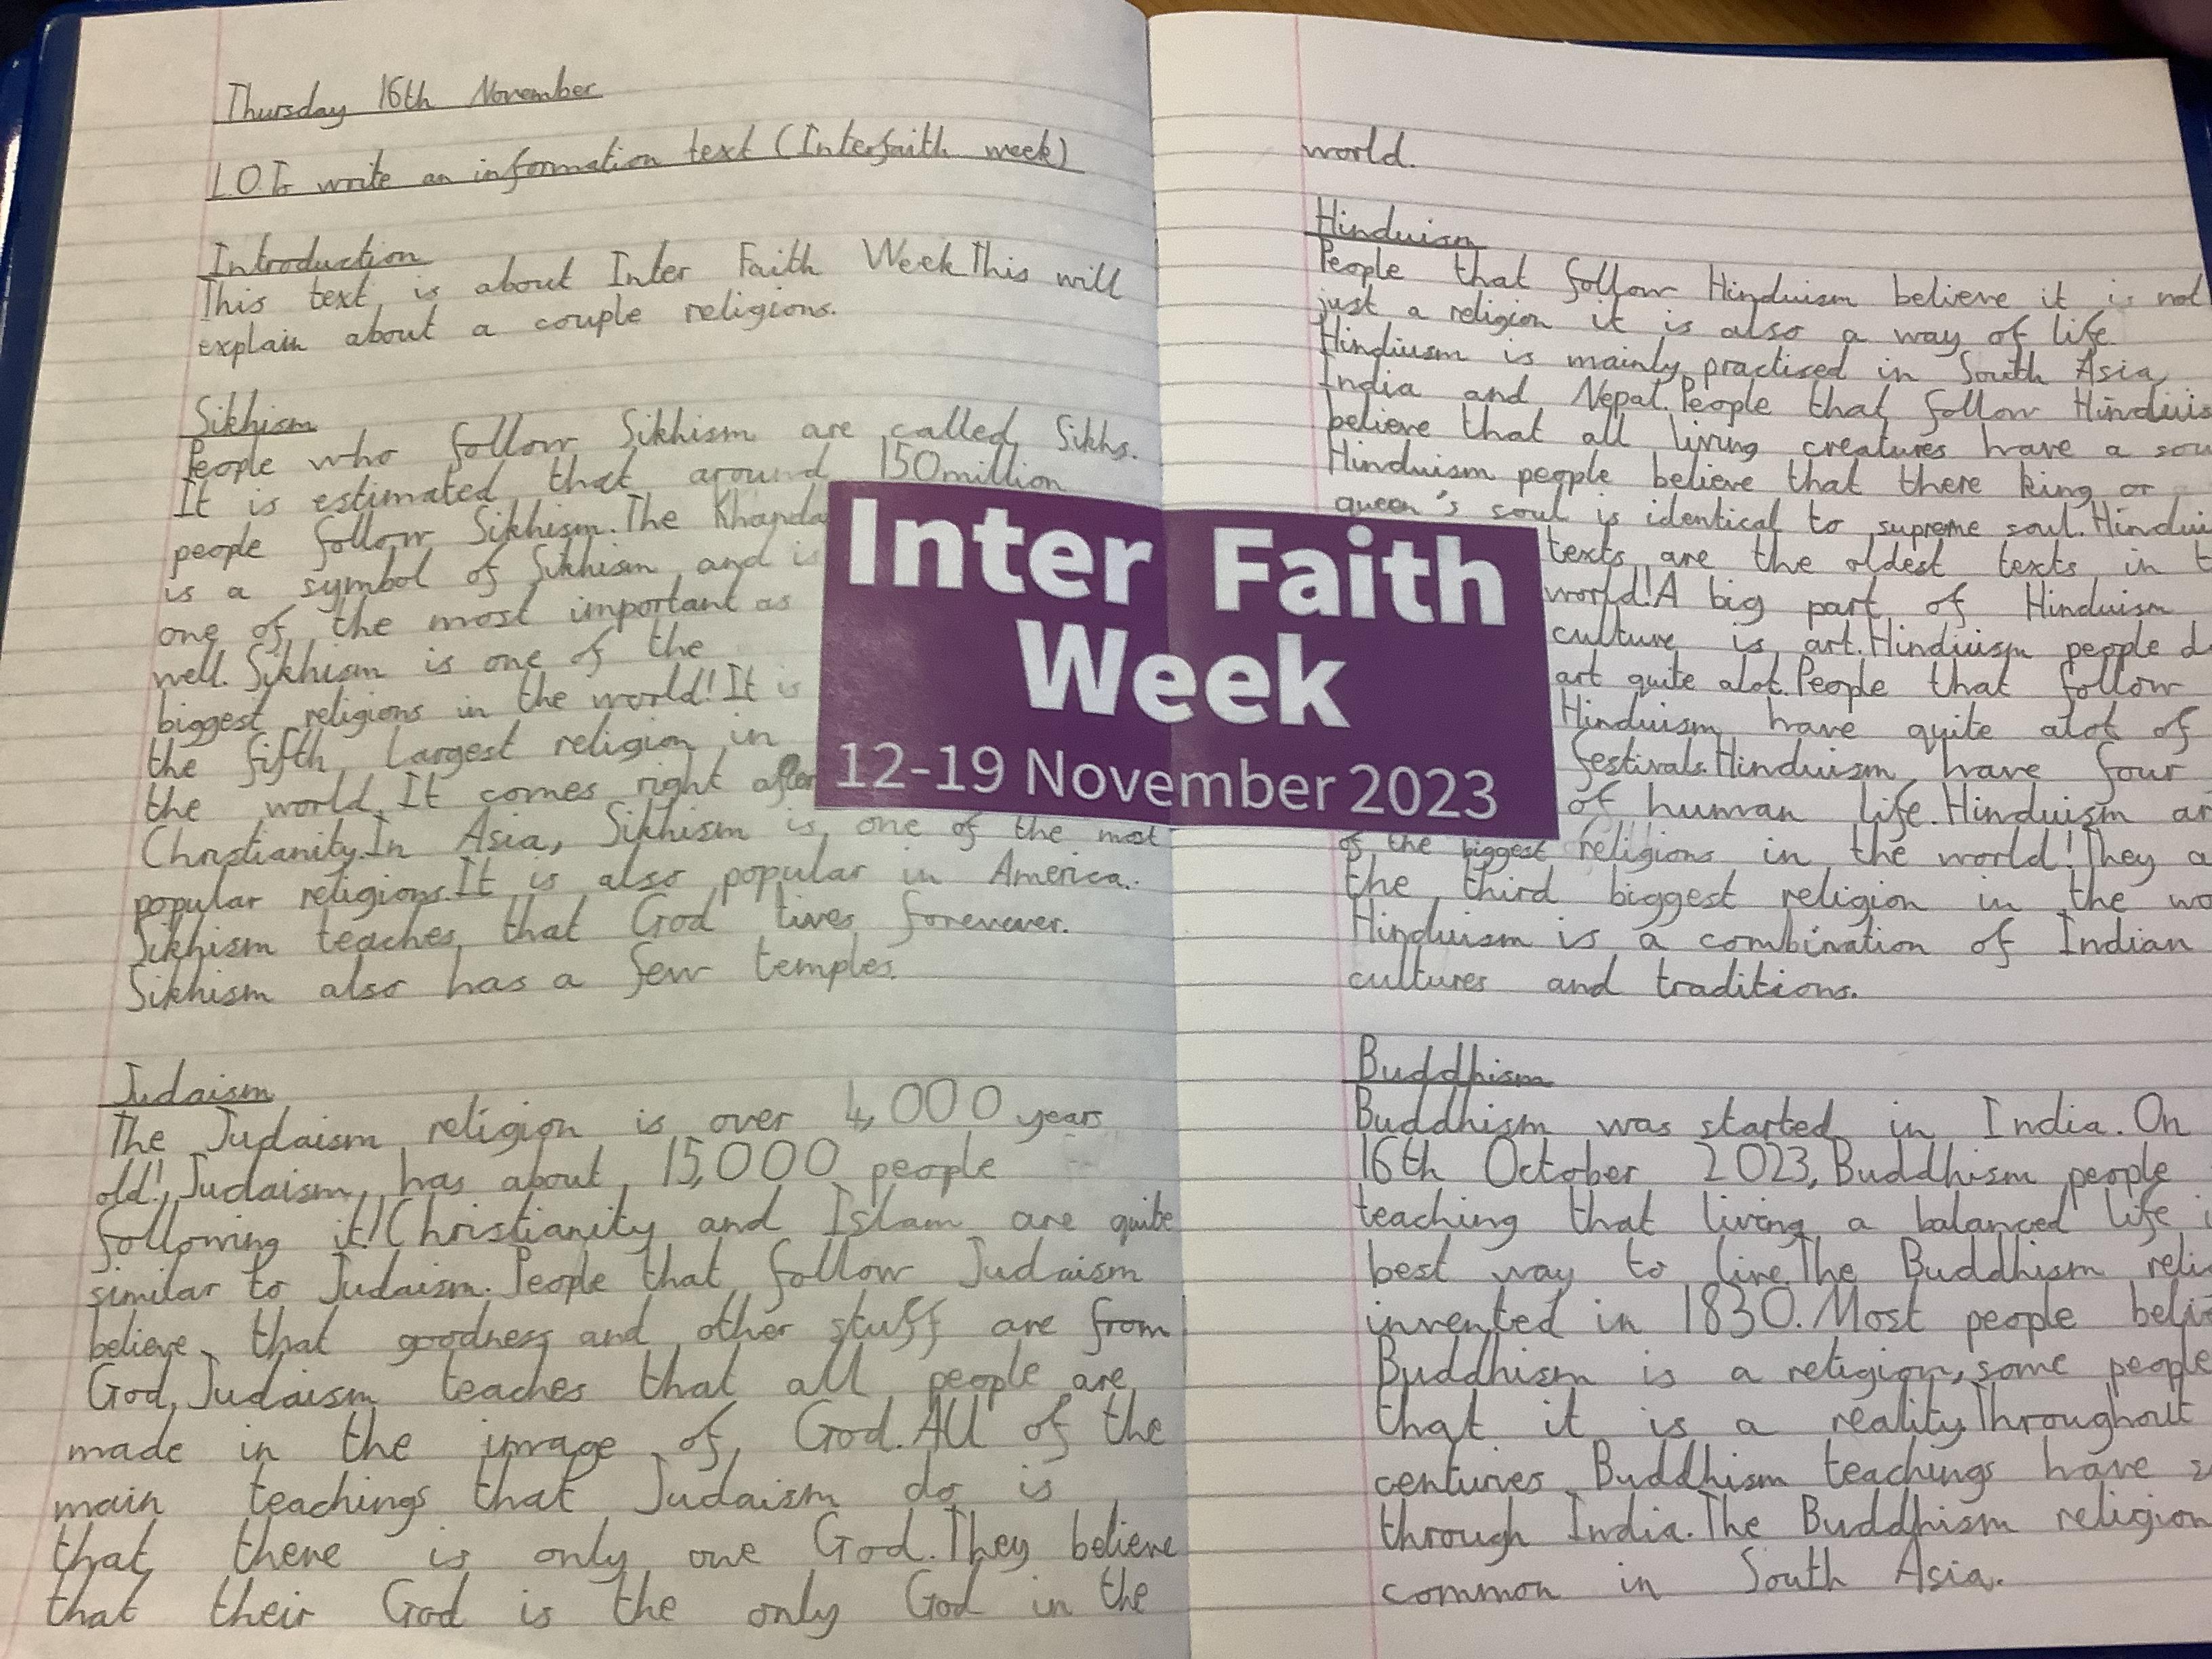 Thursday 16th November
L.O.To write an information text (Interfaith week)
Introduction
This text is about Inter Faith Week.This will
explain about a couple religions.
Sikhism
People who follow Sikhism are called Sikhs.
It is estimated that around 150million
people follow Sikhism.The Khanda
is a symbol of Sikhism and is
one of the most important as
well. Sikhism is one of the
biggest religions in the world!It is
the fifth largest religion in
the world.It comes right after
Christianity.In Asia, Sikhism is one of the most
popular religions.It is also popular in America.
Sikhism teaches that God lives forever.
Sikhism also has a few temples.
Judaism
The Judaism religion is over 4,000 years
old!Judaism has about 15,000 people
following it!Christianity and Islam are quite
similar to Judaism.People that follow Judaism
believe that goodness and other stuff are from
God.Judaism teaches that all people are
made in the image of God.All of the
main teachings that Judaism do is
that there is only one God.They believe
that their God is the only God in the
Inter Faith
Week
12-19 November 2023
world.
Hinduism
People that follow Hinduism believe it is not
just a religion it is also a way of life.
Hinduism is mainly practised in South Asia,
India and Nepal.People that follow Hinduis
believe that all living creatures have a sou
Hinduism people believe that there king or
queen's soul is identical to supreme soul.Hindui
texts are the oldest texts in t
world!A big part of Hinduism
culture is art.Hinduism people d
art quite alot.People that follow
Hinduism have quite alot of
festivals.Hinduism have four
of human life.Hinduism ar
of the biggest religions in the world!They a
the third biggest religion in the wo
Hinduism is a combination of Indian
cultures and traditions.
Buddhism
Buddhism was started in India.On
16th October 2023,Buddhism people
teaching that living a balanced life i
best way to live.The Buddhism relig
invented in 1830.Most people belie
Buddhism is a religion,some people
that it is a reality.Throughout
centuries Buddhism teachings have
through India.The Buddhism religion
common in South Asia.